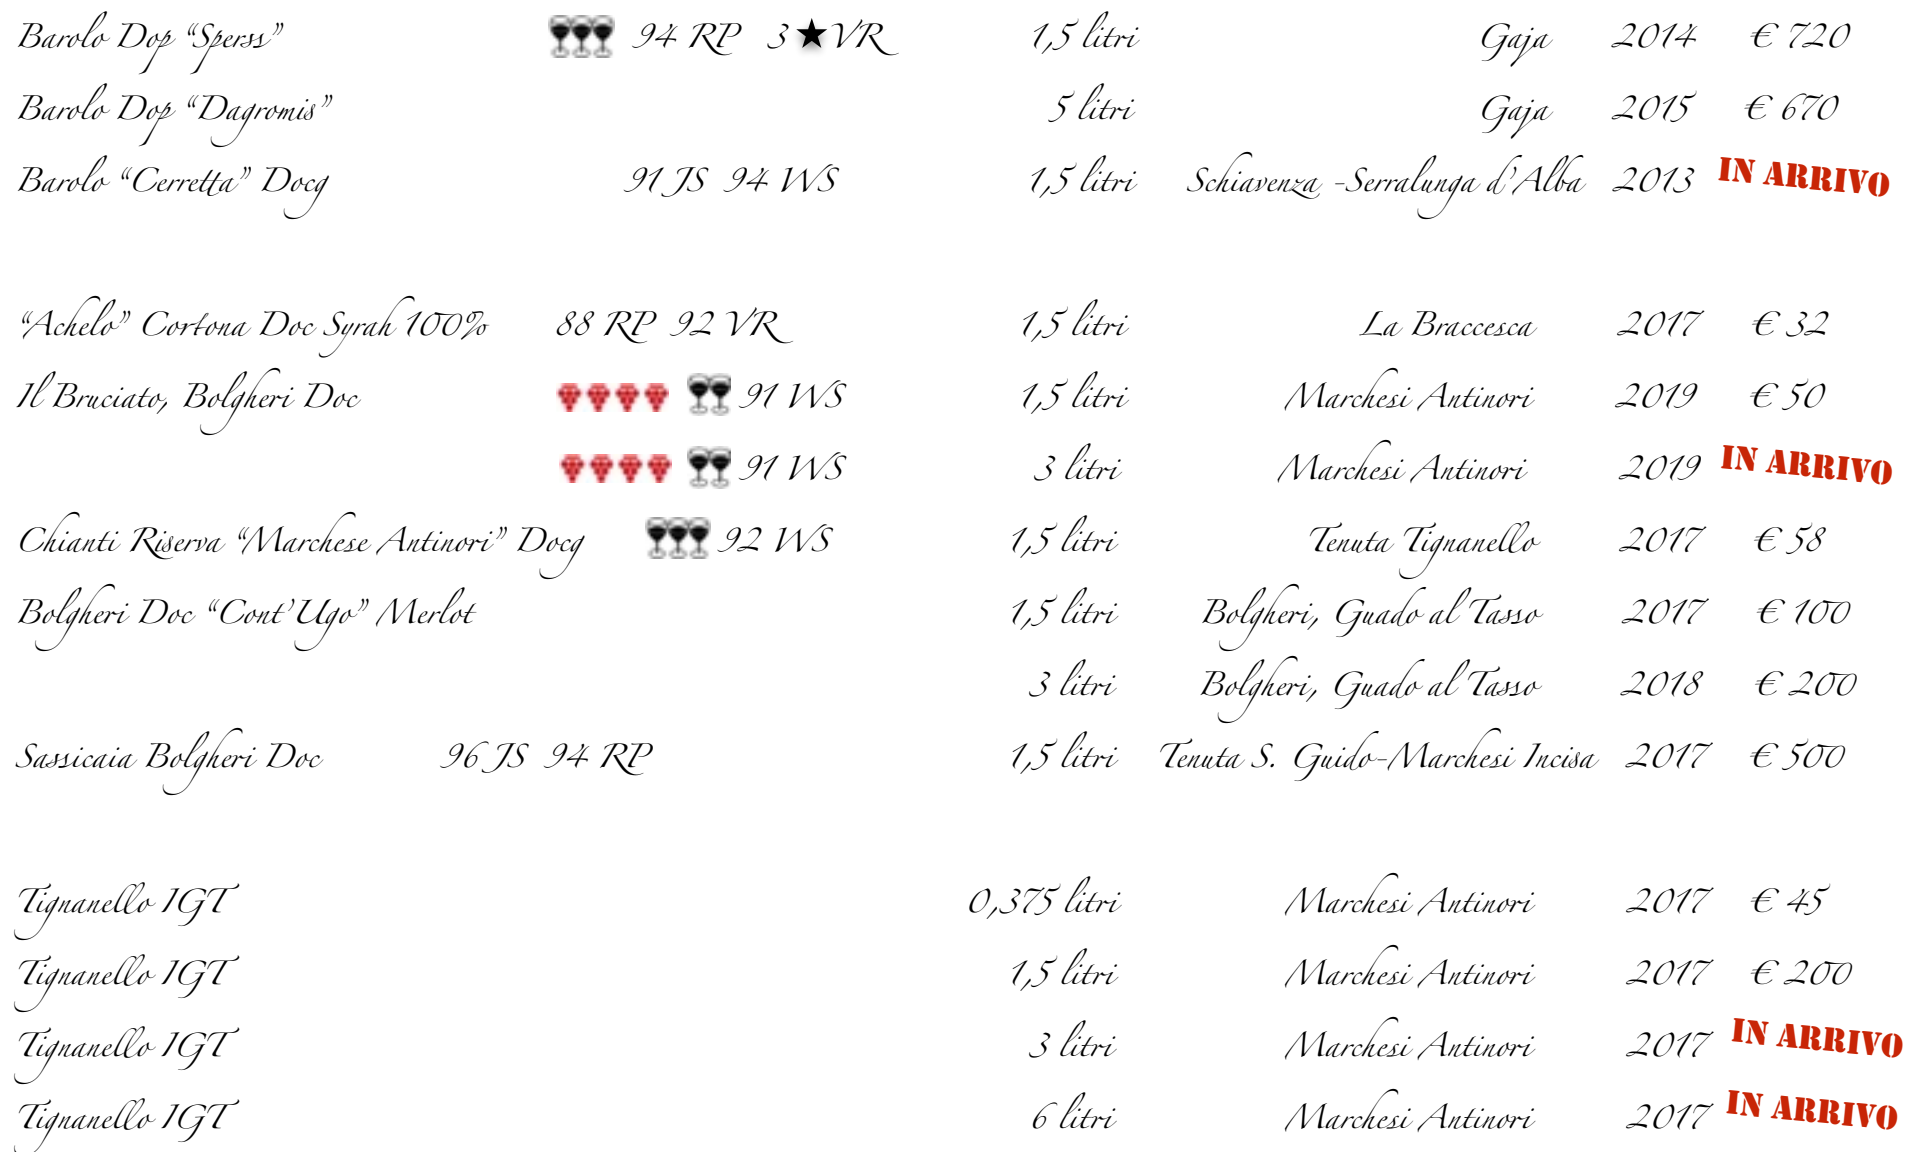 Barolo Dop “Sperss” 94 RP 3 ★VR 1,5 litri Gaja 2014 € 720
Barolo Dop “Dagromis” 5 litri Gaja 2015 € 670
Barolo “Cerretta” Docg 91 JS 94 WS 1,5 litri Schiavenza -Serralunga d’Alba 2013 IN ARRIVO
“Achelo” Cortona Doc Syrah 100% 88 RP 92 VR 1,5 litri La Braccesca 2017 € 32
Il Bruciato, Bolgheri Doc 91 WS 1,5 litri Marchesi Antinori 2019 € 50
91 WS 3 litri Marchesi Antinori 2019 IN ARRIVO
Chianti Riserva “Marchese Antinori” Docg 92 WS 1,5 litri Tenuta Tignanello 2017 € 58
Bolgheri Doc “Cont’Ugo” Merlot 1,5 litri Bolgheri, Guado al Tasso 2017 € 100
3 litri Bolgheri, Guado al Tasso 2018 € 200
Sassicaia Bolgheri Doc 96 JS 94 RP 1,5 litri Tenuta S. Guido-Marchesi Incisa 2017 € 500
Tignanello IGT 0,375 litri Marchesi Antinori 2017 € 45
Tignanello IGT 1,5 litri Marchesi Antinori 2017 € 200
Tignanello IGT 3 litri Marchesi Antinori 2017 IN ARRIVO
Tignanello IGT 6 litri Marchesi Antinori 2017 IN ARRIVO